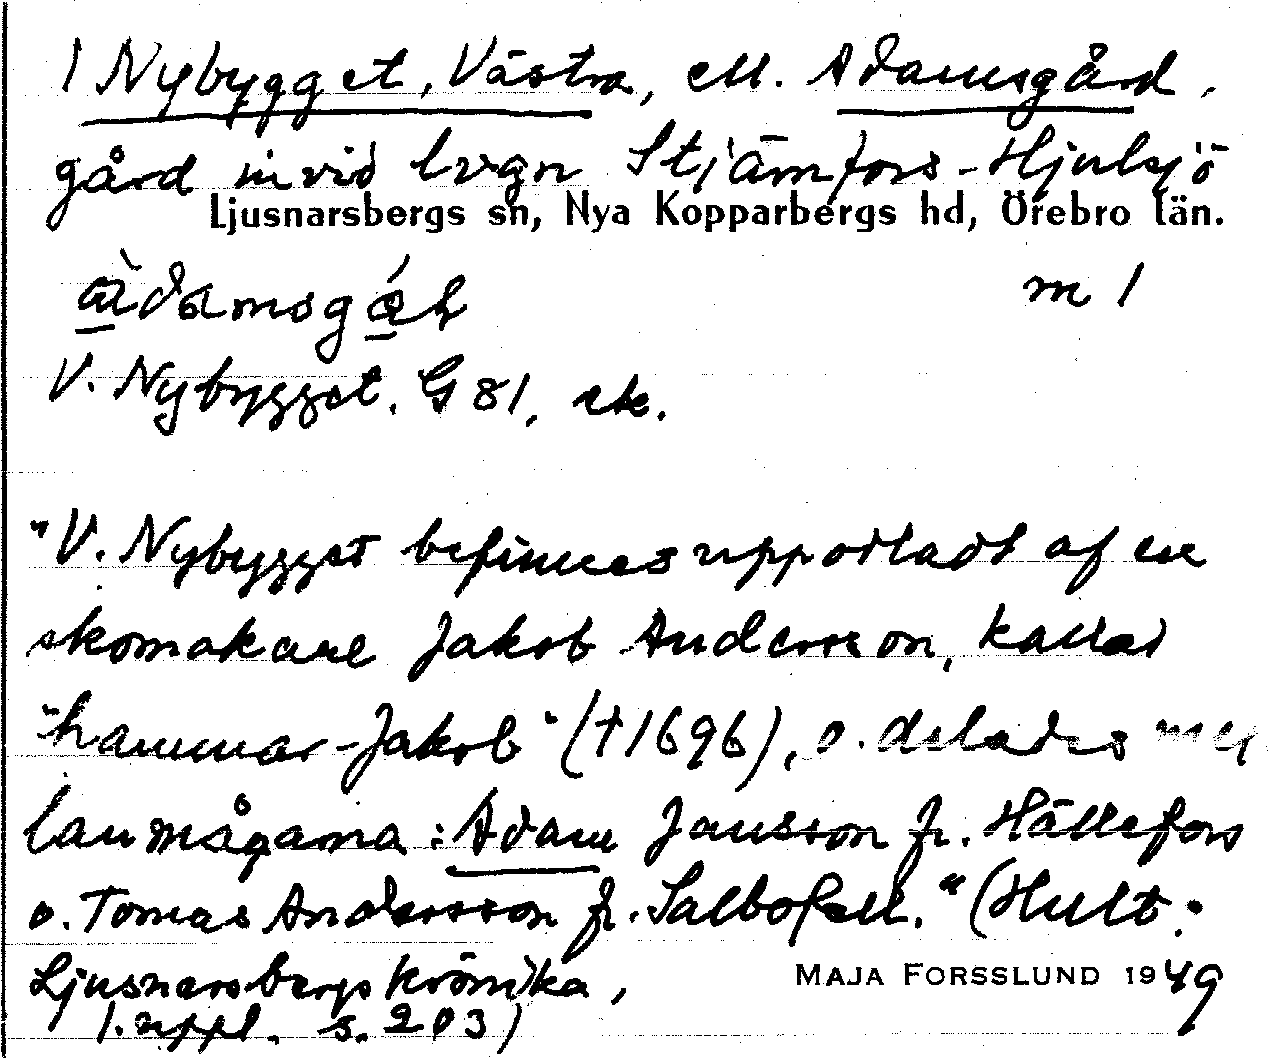 1 Nybygget, Västra, ell. Adamsgård,
gård invid lvgn Stjärnfors-Hjulsjö
Ljusnarsbergs sn, Nya Kopparbergs hd, Örebro län.
m 1
V. Nybygget. G 81, ek.
"V. Nybygget befinnes uppodladt af en
skomakare Jakob Andersson, kallad
"hammar-Jakob" (†1696), o. delades mel
lan mågarna: Adam Jansson fr. Hällefors
o. Tomas Andersson fr. Salbofell." (Hult:
Ljusnarsbergs krönika,
MAJA FORSSLUND 1949
1. uppl. s. 203)